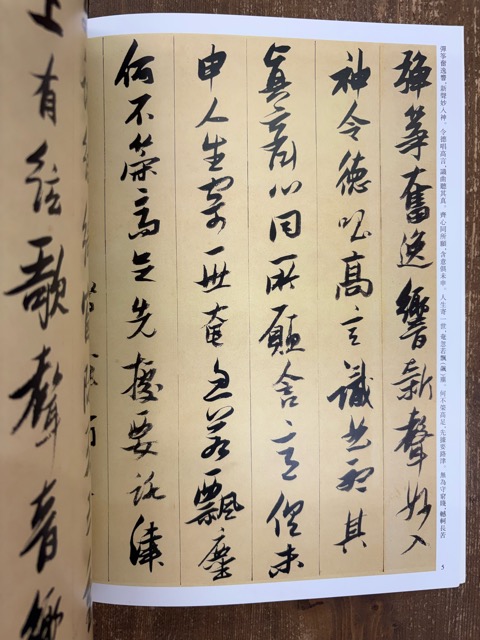 彈箏奮逸響,新聲妙入神。令德唱高言,識曲聽其真。齊心同所願,含意俱未申。人生寄一世,奄忽若飄(飆)塵。何不策高足,先據要路津。無為守窮賤,轗軻長苦
彈箏奮逸響新聲妙入
神令德唱高言識曲聽其
真齊心同所願含意俱未
申人生寄一世奄忽若飄塵
何不策高足先據要路津
5
上有弦歌聲音響